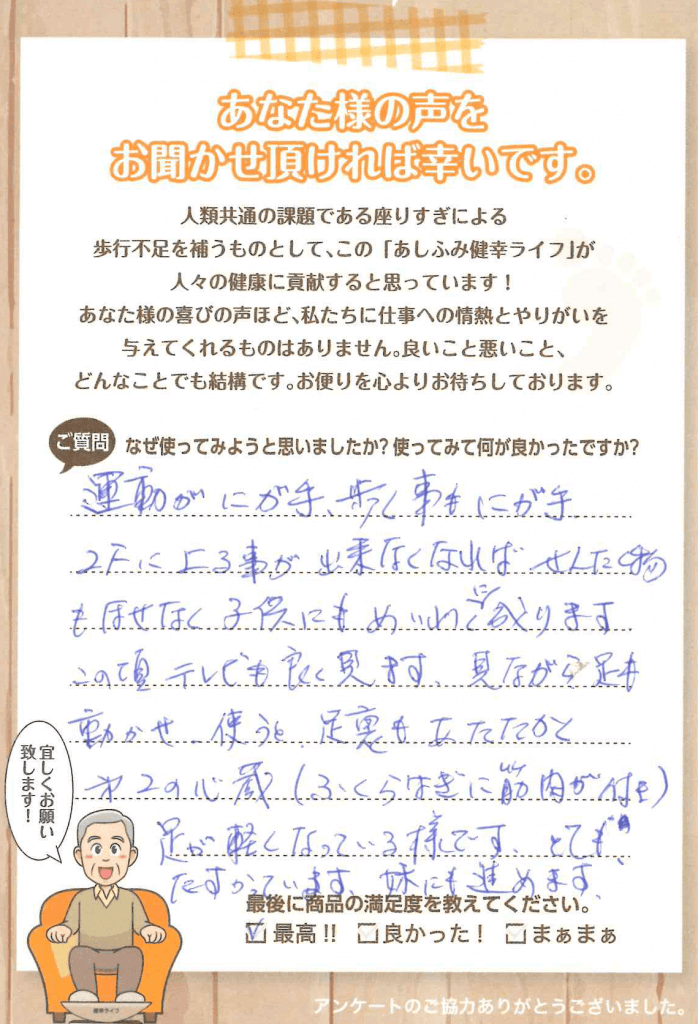 あなた様の声を
お聞かせ頂ければ幸いです。
人類共通の課題である座りすぎによる
歩行不足を補うものとして、この「あしふみ健幸ライフ」が
人々の健康に貢献すると思っています！
あなた様の喜びの声ほど、私たちに仕事への情熱とやりがいを
与えてくれるものはありません。良いこと悪いこと、
どんなことでも結構です。お便りを心よりお待ちしております。
ご質問
なぜ使ってみようと思いましたか？使ってみて何が良かったですか？
運動がにが手、歩く事もにが手
2Fに上る事が出来なくなれば せんたく物
もほせなく子供にもめいわくに成ります
この頃テレビも良く見ます、見ながら足も
動かせ、使うと、足裏もあたたかと
才2の心蔵(ふくらはぎに筋肉が付き)
足が軽くなっている様です、とても
たすかっています、妹にも進めます
宜しくお願い
致します！
最後に商品の満足度を教えてください。
最高!! 良かった！ まぁまぁ
健幸ライフ
アンケートのご協力ありがとうございました。